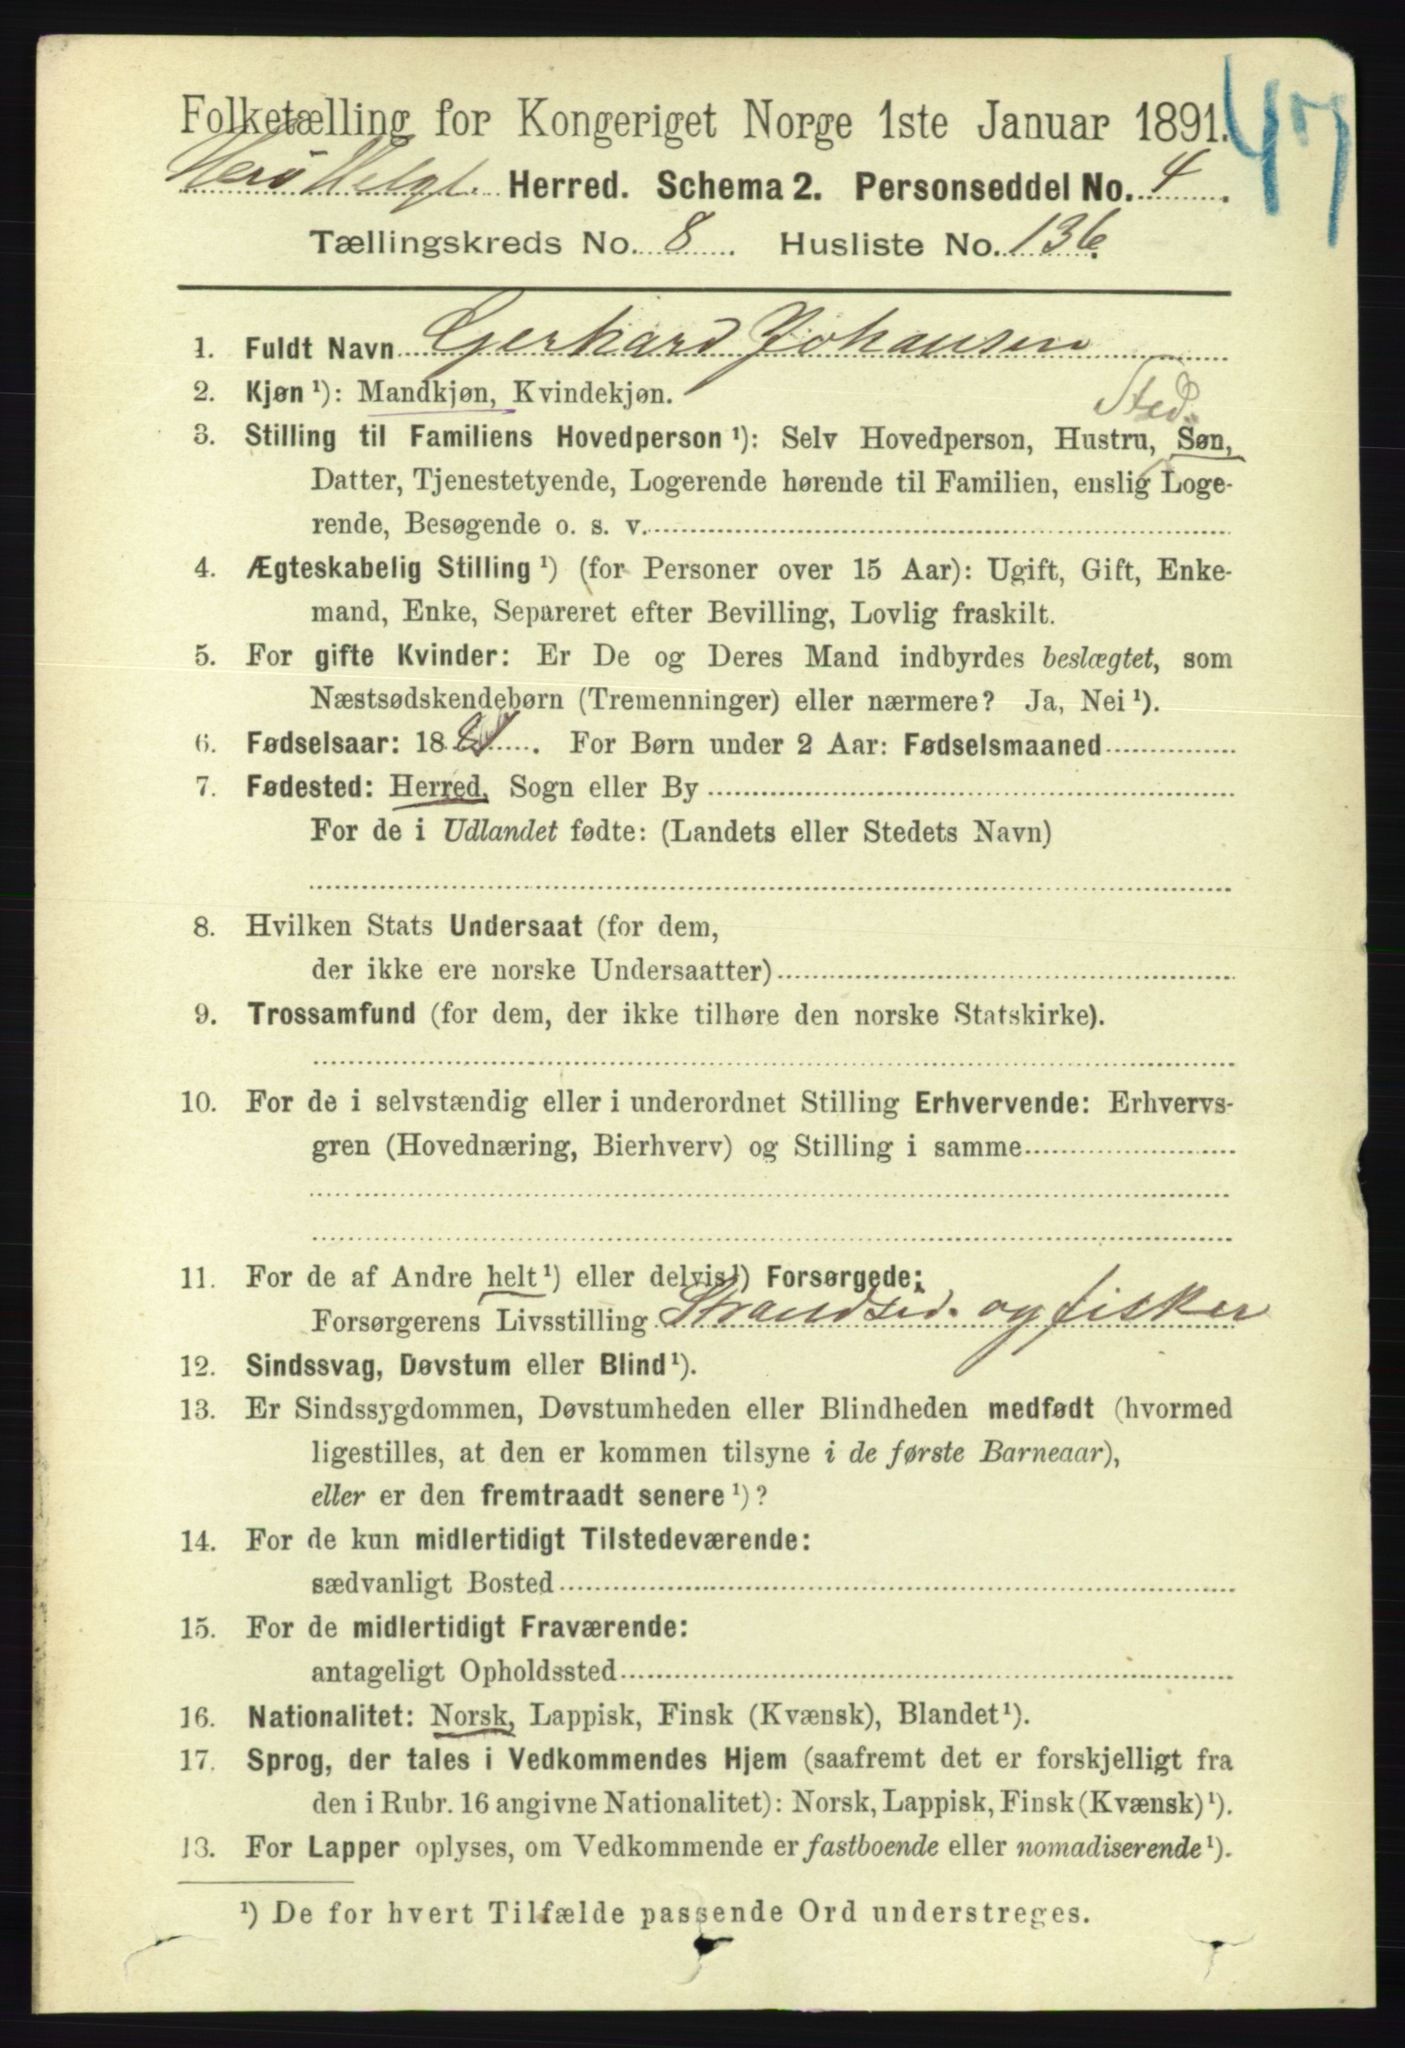 47
Folketælling for Kongeriget Norge 1ste Januar 1891.
Herø Helgl. Herred. Schema 2. Personseddel No. 4.
Tællingskreds No. 8. Husliste No. 136.
1. Fuldt Navn Gerhard Johansen
2. Kjøn ¹): Mandkjøn, Kvindekjøn.
Sted-
3. Stilling til Familiens Hovedperson ¹): Selv Hovedperson, Hustru, Søn,
Datter, Tjenestetyende, Logerende hørende til Familien, enslig Loge-
rende, Besøgende o. s. v.
4. Ægteskabelig Stilling ¹) (for Personer over 15 Aar): Ugift, Gift, Enke-
mand, Enke, Separeret efter Bevilling, Lovlig fraskilt.
5. For gifte Kvinder: Er De og Deres Mand indbyrdes beslægtet, som
Næstsødskendebørn (Tremenninger) eller nærmere? Ja, Nei ¹).
6. Fødselsaar: 18 . For Børn under 2 Aar: Fødselsmaaned
7. Fødested: Herred, Sogn eller By
For de i Udlandet fødte: (Landets eller Stedets Navn)
8. Hvilken Stats Undersaat (for dem,
der ikke ere norske Undersaatter)
9. Trossamfund (for dem, der ikke tilhøre den norske Statskirke).
10. For de i selvstændig eller i underordnet Stilling Erhvervende: Erhvervs-
gren (Hovednæring, Bierhverv) og Stilling i samme
11. For de af Andre helt ¹) eller delvis ¹) Forsørgede:
Forsørgerens Livsstilling Strandsid. og fisker
12. Sindssvag, Døvstum eller Blind ¹).
13. Er Sindssygdommen, Døvstumheden eller Blindheden medfødt (hvormed
ligestilles, at den er kommen tilsyne i de første Barneaar),
eller er den fremtraadt senere ¹)?
14. For de kun midlertidigt Tilstedeværende:
sædvanligt Bosted
15. For de midlertidigt Fraværende:
antageligt Opholdssted
16. Nationalitet: Norsk, Lappisk, Finsk (Kvænsk), Blandet ¹).
17. Sprog, der tales i Vedkommendes Hjem (saafremt det er forskjelligt fra
den i Rubr. 16 angivne Nationalitet): Norsk, Lappisk, Finsk (Kvænsk) ¹).
13. For Lapper oplyses, om Vedkommende er fastboende eller nomadiserende ¹).
¹) De for hvert Tilfælde passende Ord understreges.